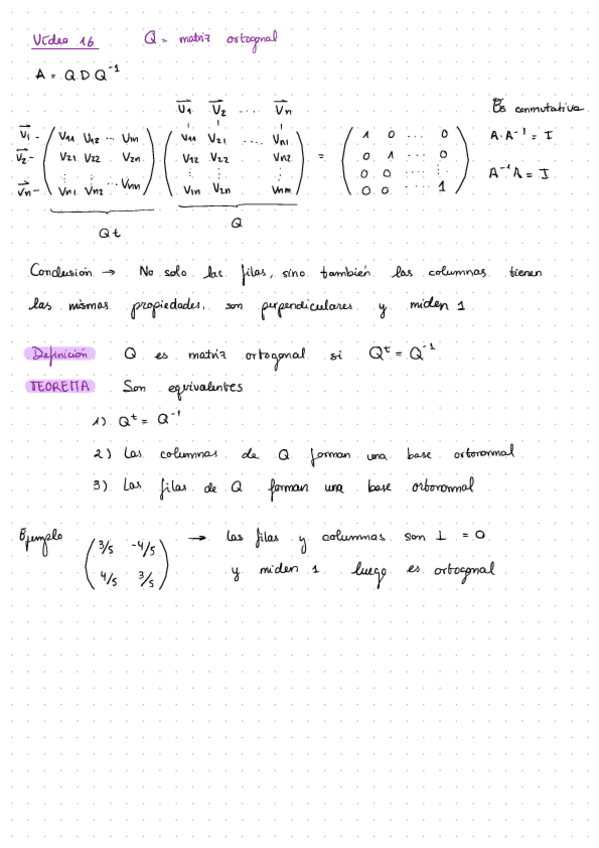 Vídeo 16 Q = matriz ortogonal
A = Q D Q⁻¹
V₁ V₂ .... Vn Es conmutativa
V₁ - ( V₁₁ V₁₂ ... V₁n ) ( V₁₁ V₂₁ ... Vn₁ ) = ( 1 0 ... 0 ) A·A⁻¹ = I
V₂ - ( V₂₁ V₂₂ V₂n ) ( V₁₂ V₂₂ Vn₂ ) ( 0 1 ... 0 ) A⁻¹A = I
( ⋮ ⋮ ) ( ⋮ ⋮ ⋮ ) ( 0 0 ... ⋮ )
Vn - ( Vn₁ Vn₂ ... Vnn ) ( V₁n V₂n Vnm ) ( 0 0 .... 1 )
Qt Q
Conclusión → No solo las filas, sino también las columnas tienen
las mismas propiedades, son perpendiculares y miden 1
Definición Q es matriz ortogonal si Qᵗ = Q⁻¹
TEOREMA Son equivalentes
1) Qᵗ = Q⁻¹
2) Las columnas de Q forman una base ortonormal
3) Las filas de Q forman una base ortonormal
Ejemplo ( 3/5 -4/5 ) → las filas y columnas son ⊥ = 0
( 4/5 3/5 ) y miden 1 luego es ortogonal